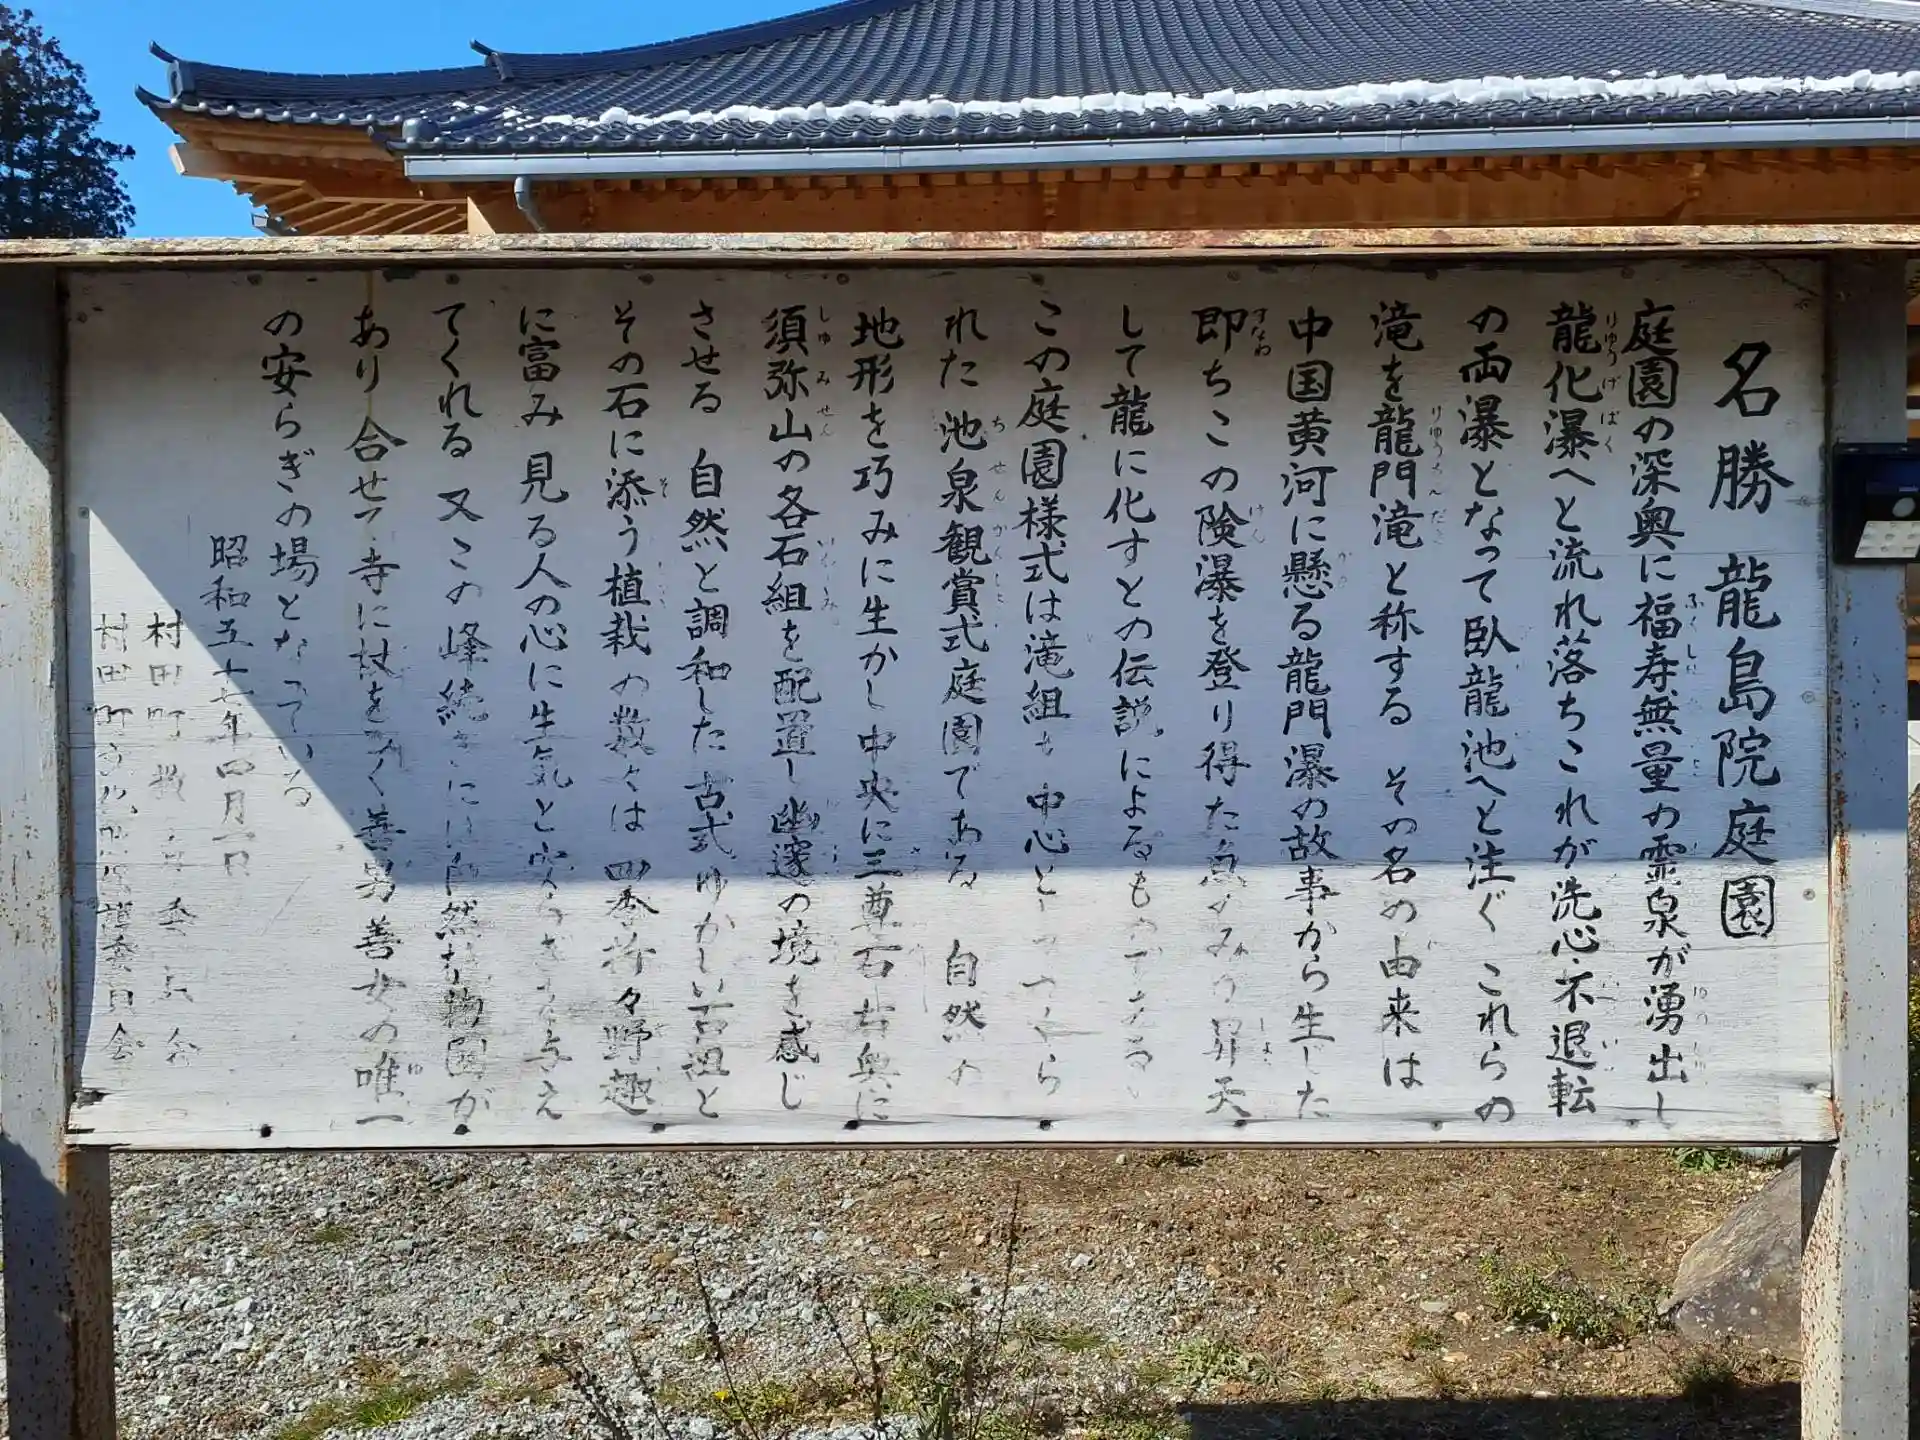 名勝 龍島院庭園
庭園の深奥に福寿無量の霊泉が湧出し
龍化瀑へと流れ落ちこれが洗心不退転
の両瀑となって臥龍池へと注ぐ これらの
滝を龍門滝と称する その名の由来は
中国黄河に懸る龍門瀑の故事から生じた
即ちこの険瀑を登り得た魚のみの昇天
して龍に化すとの伝説によるものである
この庭園様式は滝組も中心と つくら
れた 池泉観賞式庭園である 自然の
地形を巧みに生かし中央に三尊石 奥に
須弥山の各石組を配置し幽邃の境を感じ
させる 自然と調和した古式ゆかしい石組と
その石に添う植栽の数々は四季折々野趣
に富み 見る人の心に生気と安らぎを与え
てくれる 又この峰続きには自然植物園が
あり合せて寺に杖を引く善男善女の唯一
の安らぎの場となっている
昭和五十七年四月一日
村田町教育委員会
村田町文化財保護委員会